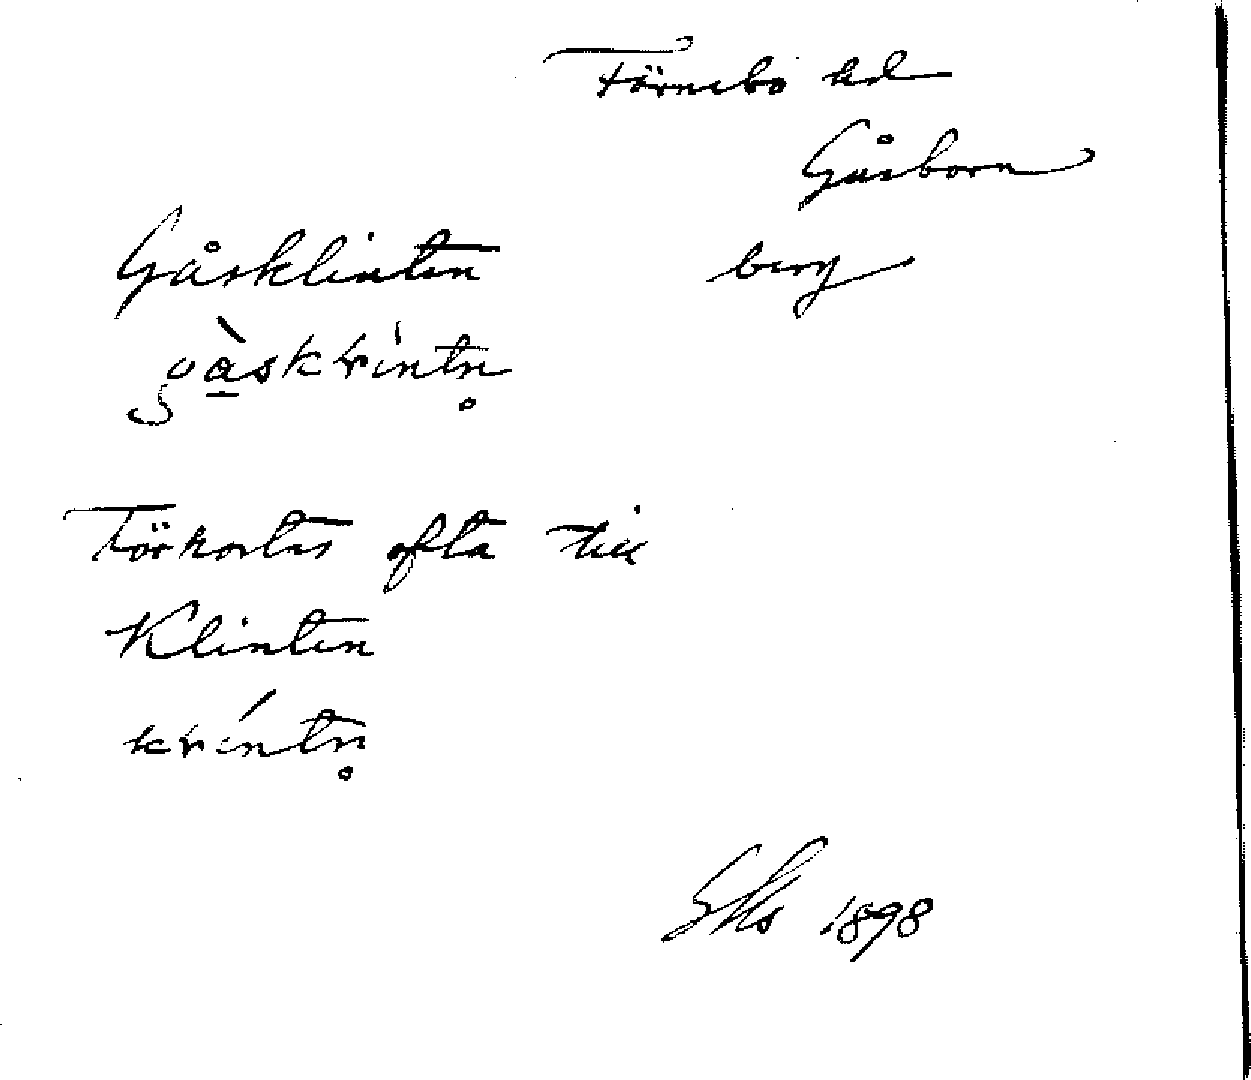 Färnebo hd
Gåsborn
Gåsklinten berg
gàskríntn̥
Förkortas ofta till
Klinten
kríntn̥
1898